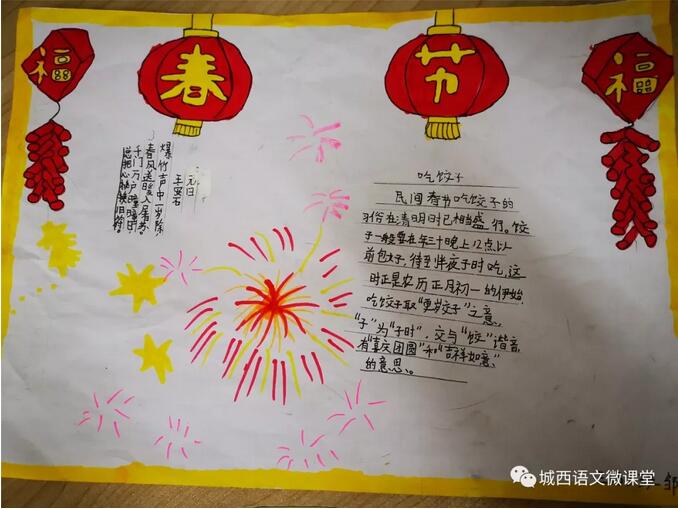 福
春
节
福
元日
王安石
爆竹声中一岁除,
春风送暖入屠苏。
千门万户曈曈日,
总把 换旧符。
吃饺子
民间春节吃饺子的
习俗在清明时已相当盛行。饺
子一般要在年三十晚上12点以
前包好,待到半夜子时吃,这
时正是农历正月初一的伊始,
吃饺子取"更岁饺子"之意,
"子"为"子时",交与"饺"谐音,
有"喜庆团圆"和"吉祥如意"
的意思。
城西语文微课堂